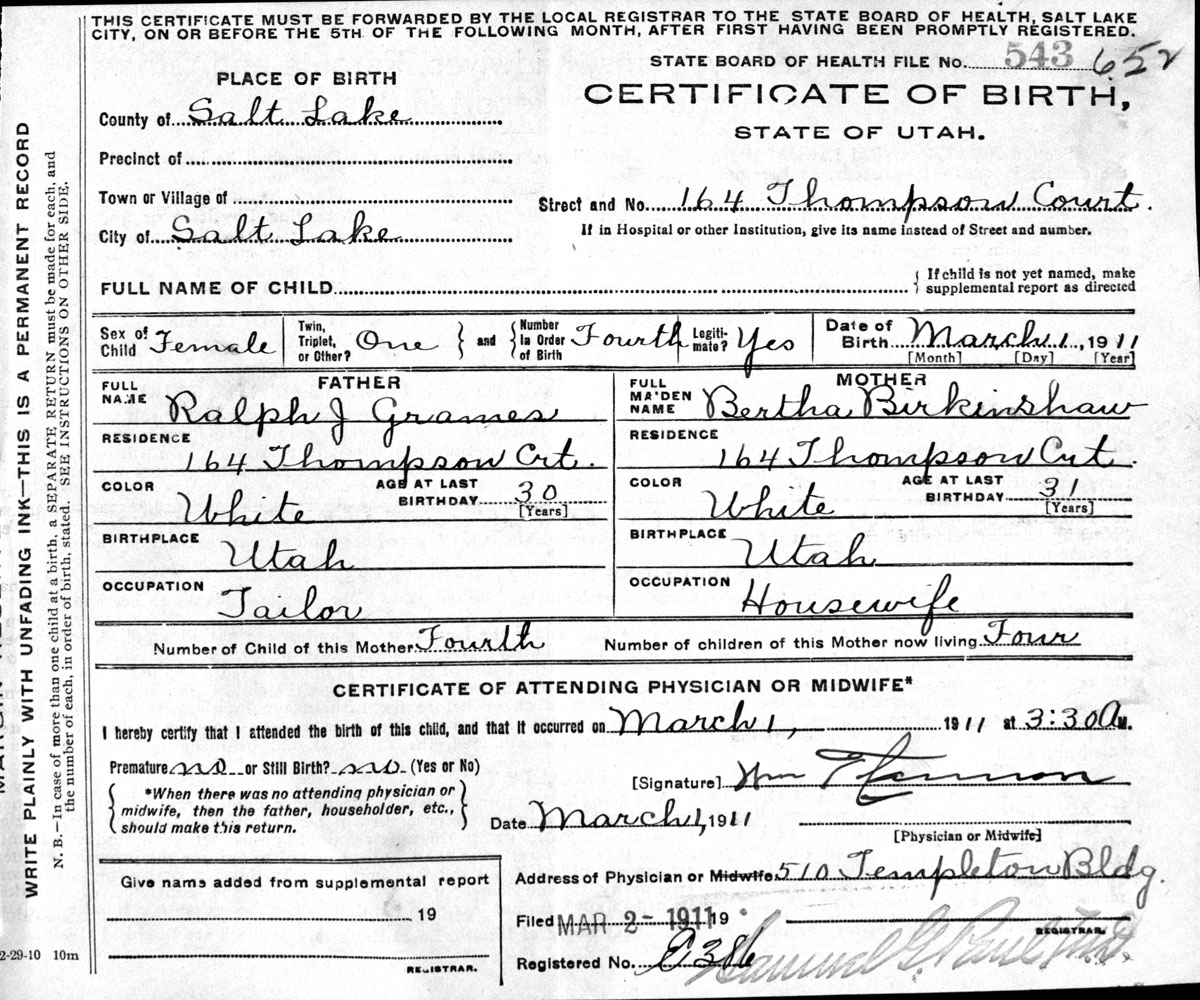 THIS CERTIFICATE MUST BE FORWARDED BY THE LOCAL REGISTRAR TO THE STATE BOARD OF HEALTH, SALT LAKE
CITY, ON OR BEFORE THE 5TH OF THE FOLLOWING MONTH, AFTER FIRST HAVING BEEN PROMPTLY REGISTERED.
STATE BOARD OF HEALTH FILE No. 543 652
PLACE OF BIRTH
CERTIFICATE OF BIRTH,
STATE OF UTAH.
County of Salt Lake
Precinct of
Town or Village of
Street and No. 164 Thompson Court.
City of Salt Lake
If in Hospital or other Institution, give its name instead of Street and number.
FULL NAME OF CHILD
If child is not yet named, make
supplemental report as directed
Sex of Child Female
Twin, Triplet, or Other? One
and
Number in Order of Birth Fourth
Legiti-mate? Yes
Date of Birth March 1, 1911
[Month] [Day] [Year]
FATHER
FULL NAME Ralph J Grames
RESIDENCE
164 Thompson Crt.
COLOR White
AGE AT LAST BIRTHDAY 30
[Years]
BIRTHPLACE
Utah
OCCUPATION
Tailor
MOTHER
FULL MA'DEN NAME Bertha Birkinshaw
RESIDENCE
164 Thompson Crt.
COLOR White
AGE AT LAST BIRTHDAY 31
[Years]
BIRTHPLACE
Utah
OCCUPATION
Housewife
Number of Child of this Mother Fourth Number of children of this Mother now living Four
CERTIFICATE OF ATTENDING PHYSICIAN OR MIDWIFE*
I hereby certify that I attended the birth of this child, and that it occurred on March 1, 1911 at 3:30 A M.
Premature no or Still Birth? no (Yes or No)
[Signature] Wm
*When there was no attending physician or
midwife, then the father, householder, etc.,
should make this return.
Date March 1, 1911
[Physician or Midwife]
Give name added from supplemental report
19
REGISTRAR.
Address of Physician or Midwife 510 Templeton Bldg.
Filed MAR 2- 1911 19
REGISTRAR.
Registered No.
Samuel G. Paul
2-29-10 10m
WRITE PLAINLY WITH UNFADING INK—THIS IS A PERMANENT RECORD
N. B.—In case of more than one child at a birth, a SEPARATE RETURN must be made for each, and
the number of each, in order of birth, stated. SEE INSTRUCTIONS ON OTHER SIDE.